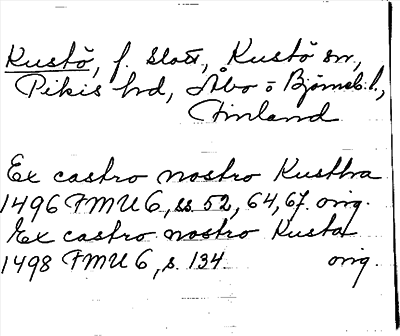 Kustö, f. slott, Kustö sn,
Pikis hd, Åbo o Björneb. l.,
Finland
Ex castro nostro Kustha
1496 FMU 6, ss 52, 64, 67. orig.
Ex castro nostro Kusta
1498 FMU 6, s. 134. orig.